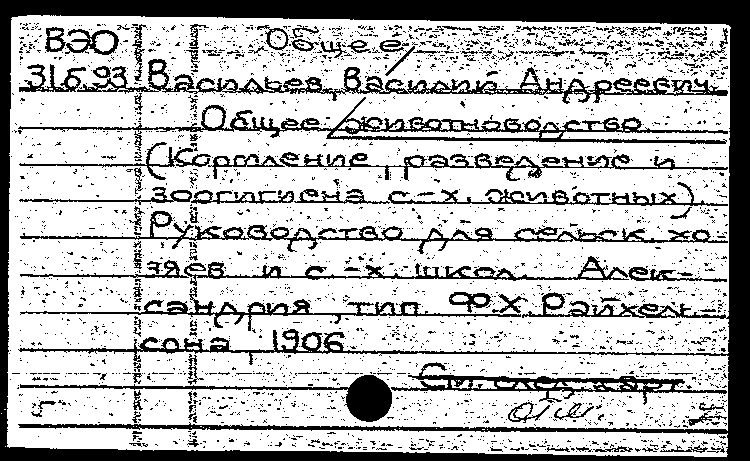 ВЭО Общее
31693 Васильев, Василий Андреевич.
Общее животноводство
(Кормление, разведение и
зоогигиена с.-х. животных).
Руководство для сельск. хо-
зяев и с.-х. школ. Алек-
сандрия, тип. Ф.Х. Райхель-
сона, 1906
См. след. карт.